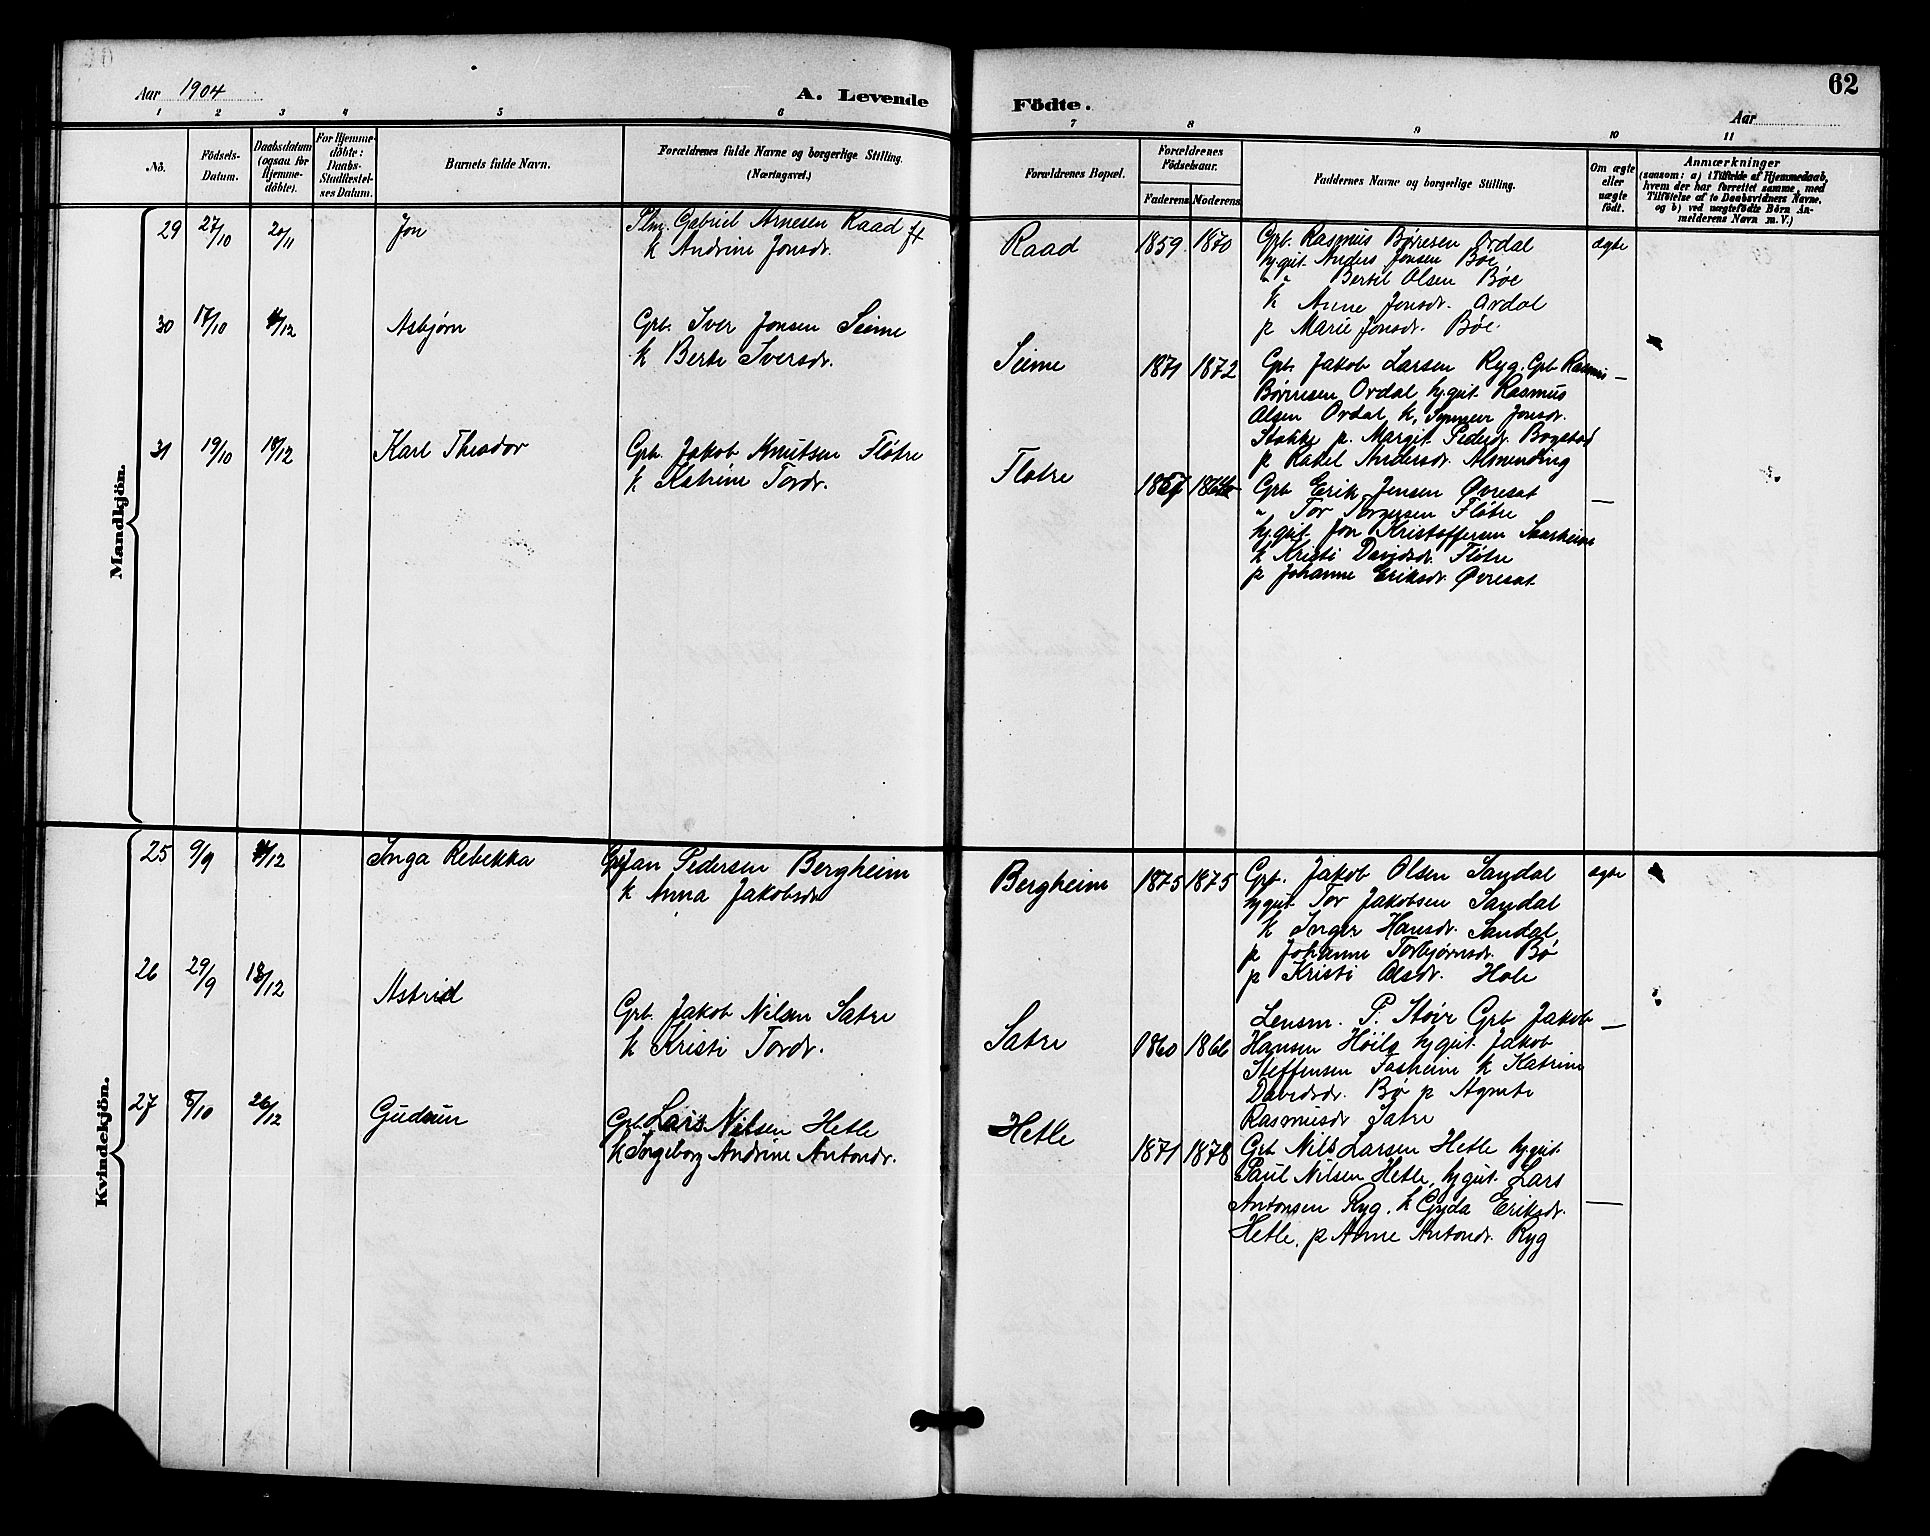 62
Aar 1904
A. Levende Födte.
Aar
1 2 3 4 5 6 7 8 9 10 11
Nö.
Födsels-Datum.
Daabsdatum (ogsaa for Hjemme-döbte).
For Hjemme-döbte: Daabs-Stadfæstel-ses Datum.
Barnets fulde Navn.
Forældrenes fulde Navne og borgerlige Stilling. (Næringsvei.)
Forældrenes Bopæl.
Forældrenes Födselsaar.
Faderens Moderens
Faddernes Navne og borgerlige Stilling.
Om ægte eller uægte födt.
Anmærkninger
(saasom: a) i Tilfælde af Hjemmedaab,
hvem der har forrettet samme, med
Tilföielse af to Daabsvidners Navne,
og b) ved uægtefödte Börn An-
melderens Navn m. V.)
Mandkjön.
29 27/10 20/11 Jon
Gabriel Arnesen Raad ft
k Andrine Jonsdr.
Raad 1859 1870
Grb. Rasmus Børresen Ordal ægte
ky.gut. Anders Jonsen Bøe
" " Bertil Olsen Bøe
k Anne Jonsdr. Ordal
p Marie Jonsdr. Bøe.
30 17/10 4/12 Asbjørn
Grb. Iver Jonsen Seime
k Berte Iversdr.
Seime 1871 1872
Grb. Jakob Larsen Ryg. Grb Rasmus —
Børresen Ordal ky.gut Rasmus
Olsen Ordal k, Jonsdr.
Stokke p. Margit Pedersdr. Bogstad
p Rakel Andersdr. Almending
31 19/10 18/12 Karl Theodor
Grb. Jakob Knutsen Fløtre
k Katrine Tordr.
Fløtre 1857
Grb Erik Jensen Øvresat —
" Tor Fløtre
ky.gut. Jon Kristoffersen Saarheim
k Kristi Davidsdr. Fløtre
p Johanne Eriksdr. Øvresat
Kvindekjön.
25 9/9 4/12 Inga Rebekka
Grb Jan Pedersen Bergheim
k Anna Jakobsdr
Bergheim 1875 1875
Grb. Jakob Olsen Sandal ægte
ky.gut. Tor Jakobsen Sandal
k Inger Hansdr. Sandal
p Johanne Torbjørnsdr. Bø
p Kristi Olsdr. Hole
26 29/9 18/12 Astrid
Grb. Jakob Nilsen Satre
k Kristi Tordr.
Satre 1860 1866
Lensm. P. Støvr Grb Jakob —
Hansen Höilo ky.gut. Jakob
Steffensen Fosheim k Katrine
Davidsdr. Bø p Agnete
Rasmusdr Satre
27 8/10 26/12 Gudrun
Grb. Lars Nilsen Hetle
k Ingeborg Andrine Antondr.
Hetle 1871 1878
Grb Nils Larsen Hetle ky.gut.
Paul Nilsen Hetle, ky.gut. Lars
Antonsen Ryg. k Gyda Eriksdr. —
Hetle. p Anne Antondr. Ryg